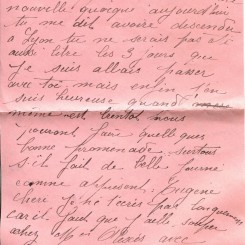 nouvelle! quoique aujourd'hui
tu me dit avoire descendu
a Lyon tu ne serais pas
aussi libre les 3 jours que
je suis allais passer
avec toi mais enfin j'en
suis heureuse quand
meme et bientot nous
pouront faire quelques
bonne promenade surtous
s'il fait de belle journé
comme apresent. Eugene
chéri je ne t'ecris pas longuement
car il faut que j'aille souper
chez Mme avec